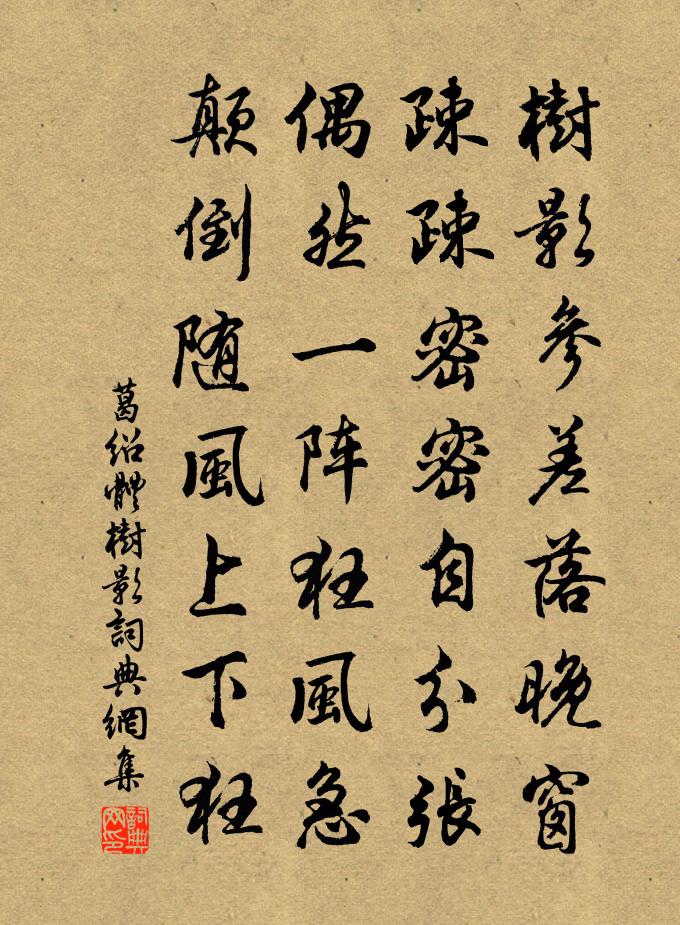 樹影參差落晚窗
疎疎密密自分張
偶然一阵狂風急
顛倒随風上下狂
葛绍體樹影詞典網集
詞典网印